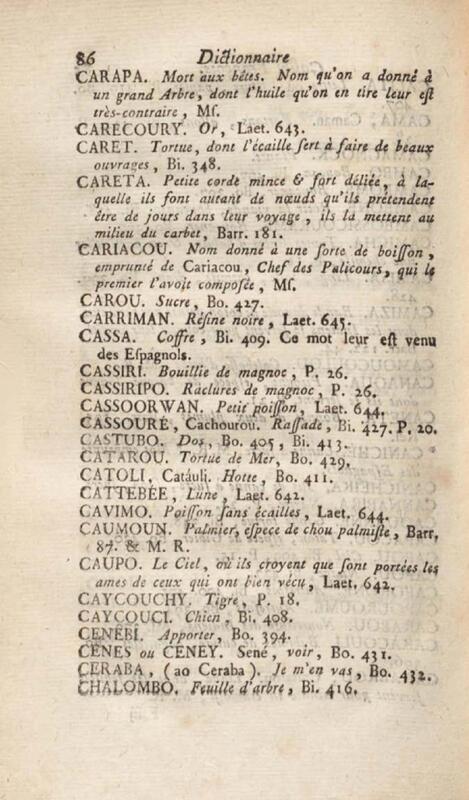 86 Dictionnaire
CARAPA. Mort aux bêtes. Nom qu'on a donné à
un grand Arbre, dont l'huile qu'on en tire leur est
très-contraire, Ms.
CARECOURY. Or, Laet. 643.
CARET. Tortue, dont l'écaille sert à faire de beaux
ouvrages, Bi. 348.
CARETA. Petite corde mince & fort déliée, à la-
quelle ils font autant de nœuds qu'ils prétendent
être de jours dans leur voyage, ils la mettent au
milieu du carbet, Barr. 181.
CARIACOU. Nom donné à une sorte de boisson,
emprunté de Cariacou, Chef des Palicours, qui le
premier l'avoit composée, Ms.
CAROU. Sucre, Bo. 427.
CARRIMAN. Résine noire, Laet. 645.
CASSA. Coffre, Bi. 409. Ce mot leur est venu
des Espagnols.
CASSIRI. Bouillie de magnoc, P. 26.
CASSIRIPO. Raclures de magnoc, P. 26.
CASSOORWAN. Petit poisson, Laet. 644.
CASSOURÉ, Cachourou. Rassade, Bi. 427. P. 20.
CASTUBO. Dos, Bo. 405, Bi. 413.
CATAROU. Tortue de Mer, Bo. 429.
CATOLI, Catáuli. Hotte, Bo. 411.
CATTEBÉE, Lune, Laet. 642.
CAVIMO. Poisson sans écailles, Laet. 644.
CAUMOUN. Palmier, espece de chou palmiste, Barr.
87. & M. R.
CAUPO. Le Ciel, où ils croyent que sont portées les
ames de ceux qui ont bien vécu, Laet. 642.
CAYCOUCHY. Tigre, P. 18.
CAYCOUCI. Chien, Bi. 408.
CENÉBÍ. Apporter, Bo. 394.
CÊNES ou CENEY. Sené, voir, Bo. 431.
CERABA, (ao Ceraba). Je m'en vas, Bo. 432.
CHALOMBO. Feuille d'arbre, Bi. 416.